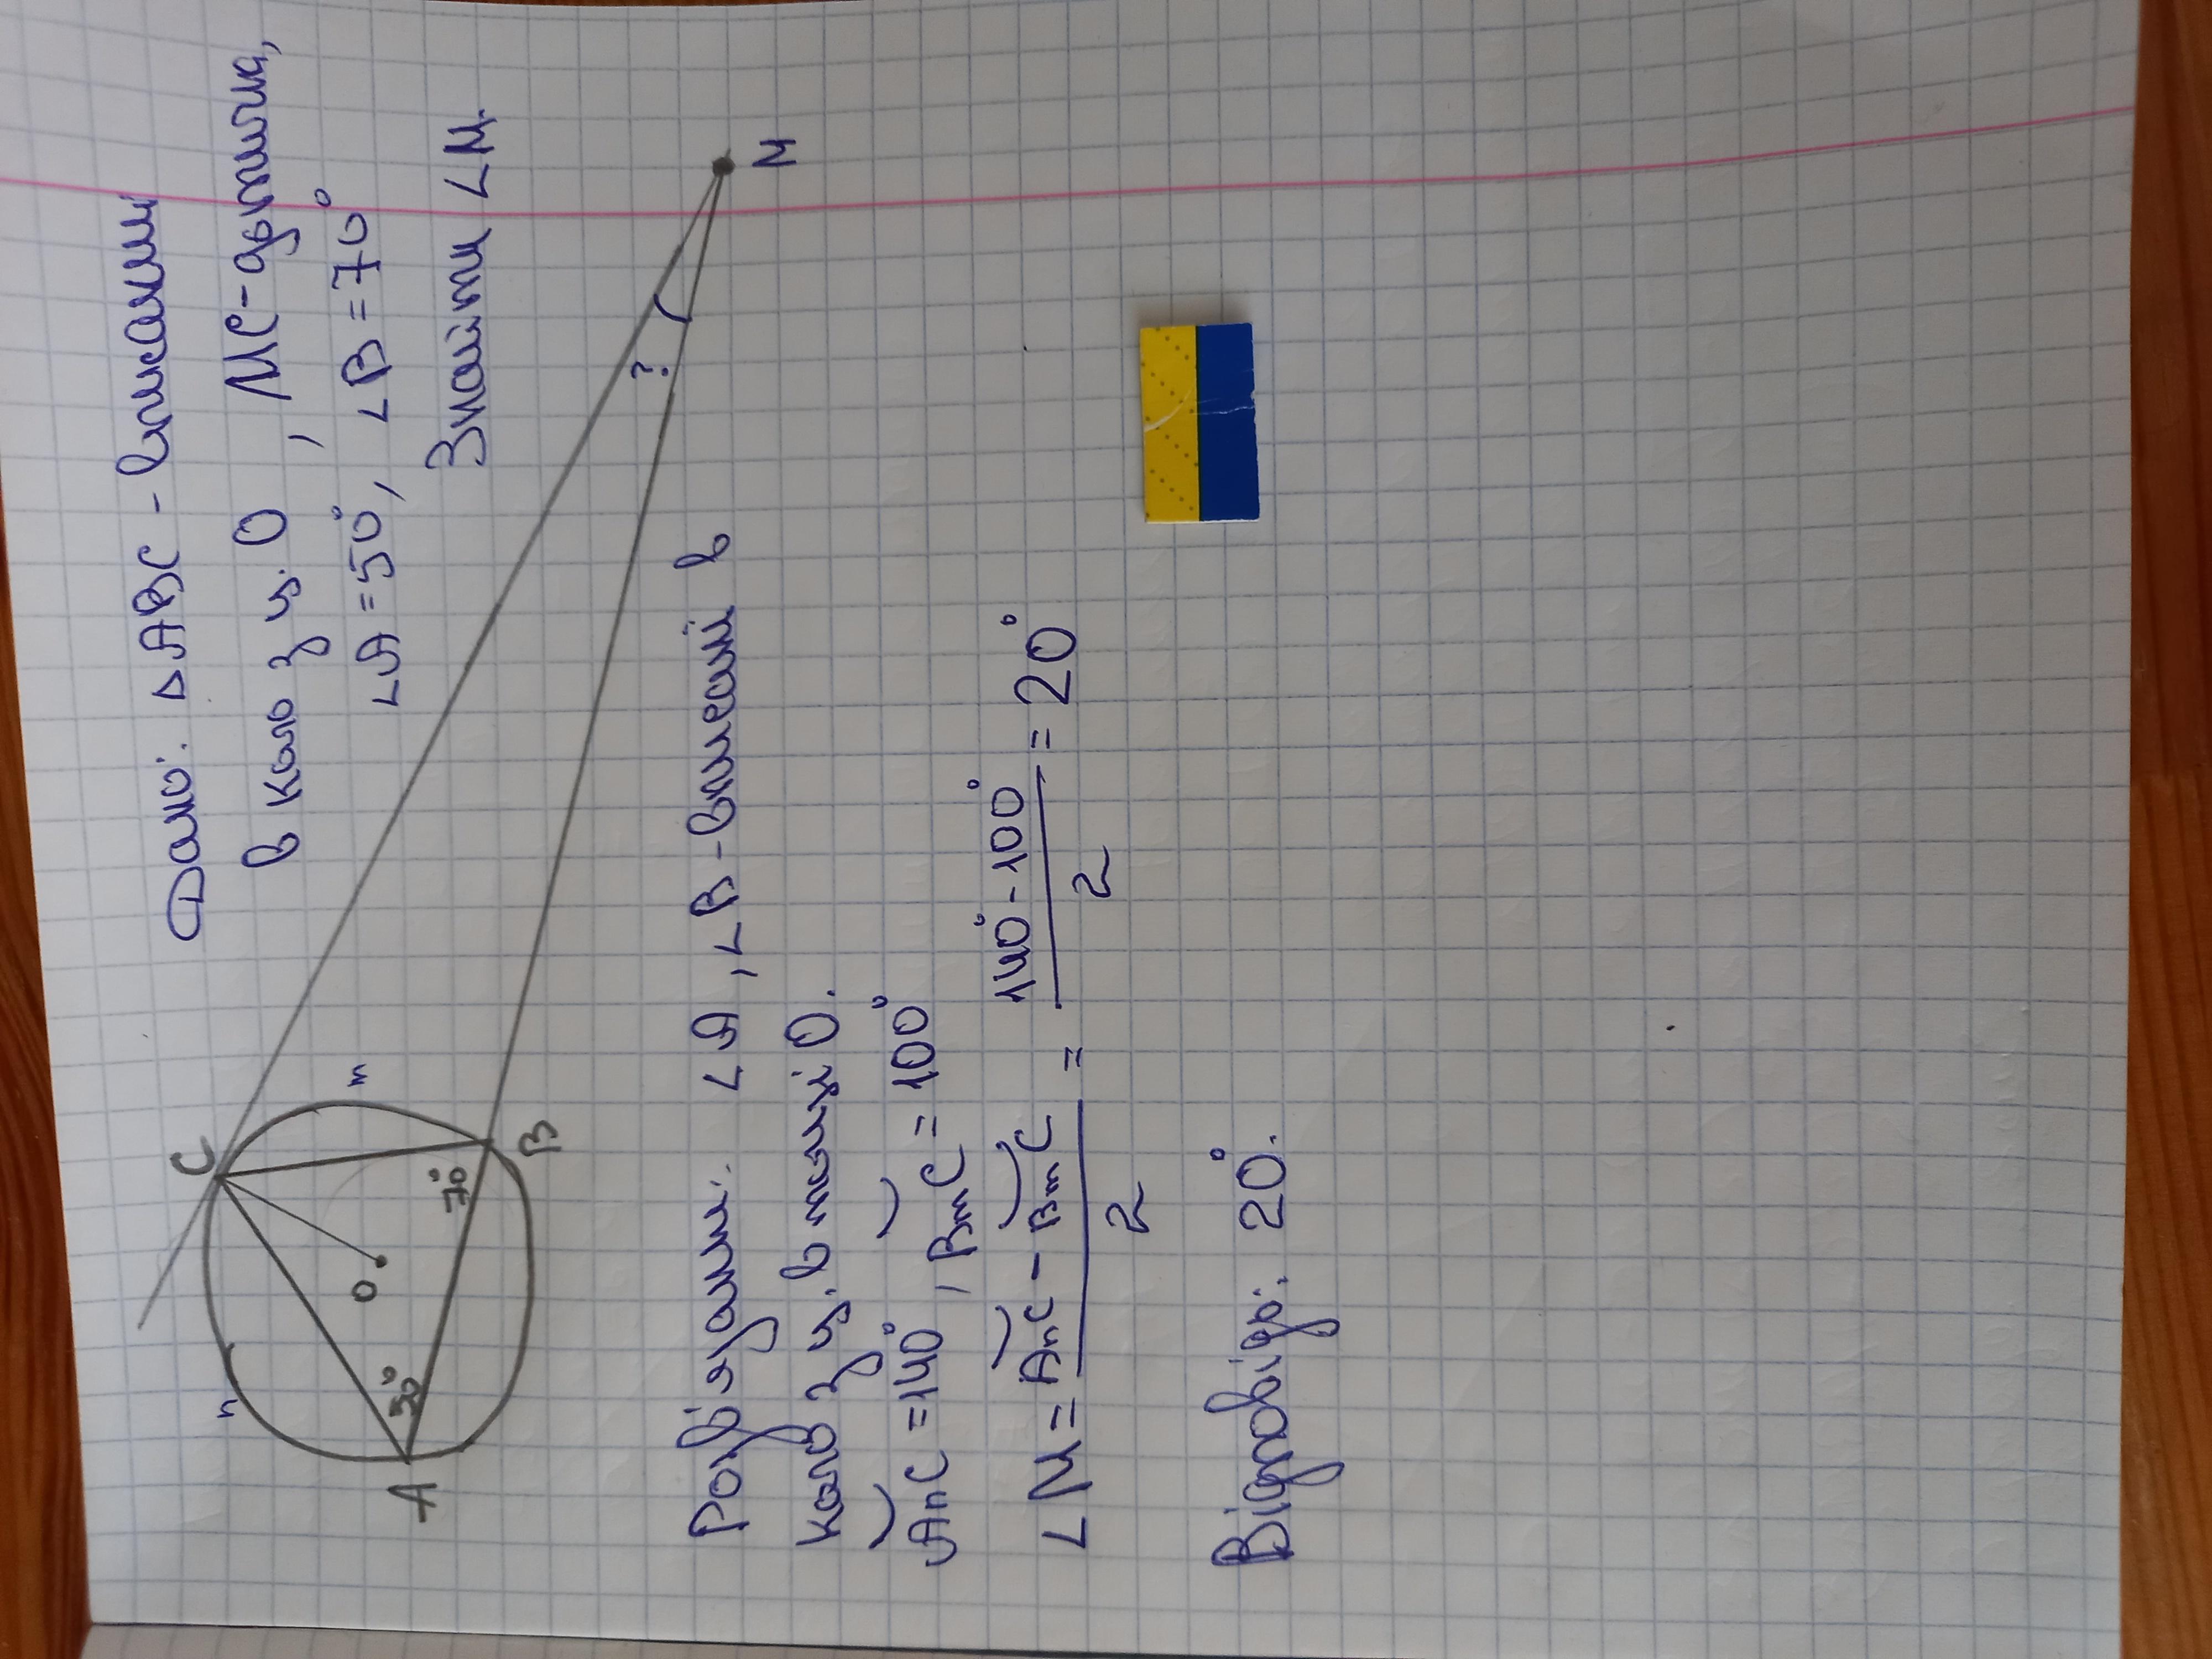 Дано: △ABC - вписаний
в коло з ц. O, MC-дотична,
∠A=50°, ∠B=70°
Знайти ∠M.
C
m
n
O
A
50°
70°
B
?
M
Розв'язання: ∠A, ∠B-вписані в
коло з ц. в точці O.
AnC=140°, BmC=100°
∠M = AnC - BmC / 2 = 140°-100° / 2 = 20°
Відповідь: 20°.